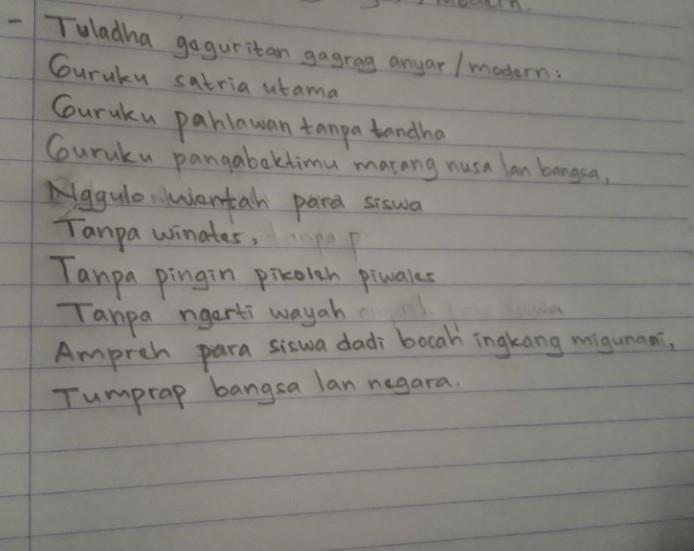 modern.
- Tuladha gaguritan gagrag anyar / modern:
Guruku satria utama
Guruku pahlawan tanpa tandha
Guruku pangabaktimu marang nusa lan bangsa,
Nggulo wentah para siswa
Tanpa winates,
Tanpa pingin pikoleh piwales
Tanpa ngerti wayah
Ampreh para siswa dadi bocah ingkang migunani,
Tumprap bangsa lan negara.